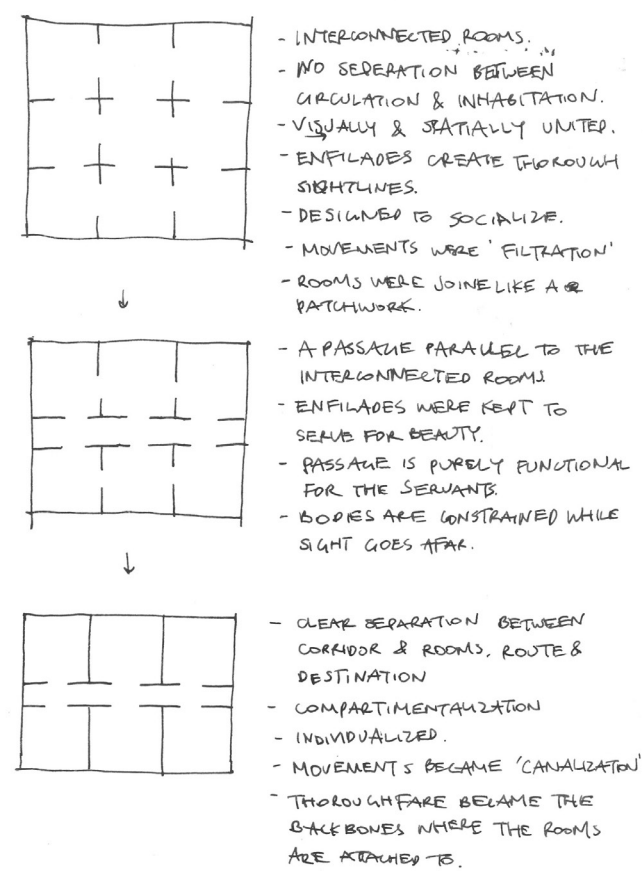 - INTERCONNECTED ROOMS.
- NO SEPERATION BETWEEN
CIRCULATION & INHABITATION.
- VISUALLY & SPATIALLY UNITED.
- ENFILADES CREATE THOROUGH
SIGHTLINES.
- DESIGNED TO SOCIALIZE.
- MOVEMENTS WERE 'FILTRATION'
- ROOMS WERE JOINE LIKE A
PATCHWORK.
- A PASSAGE PARALLEL TO THE
INTERCONNECTED ROOMS
- ENFILADES WERE KEPT TO
SERVE FOR BEAUTY.
- PASSAGE IS PURELY FUNCTIONAL
FOR THE SERVANTS.
- BODIES ARE CONSTRAINED WHILE
SIGHT GOES AFAR.
- CLEAR SEPARATION BETWEEN
CORRIDOR & ROOMS, ROUTE &
DESTINATION
- COMPARTIMENTALIZATION
- INDIVIDUALIZED.
- MOVEMENTS BECAME 'CANALIZATION'
- THOROUGHFARE BECAME THE
BACKBONES WHERE THE ROOMS
ARE ATACHED TO.